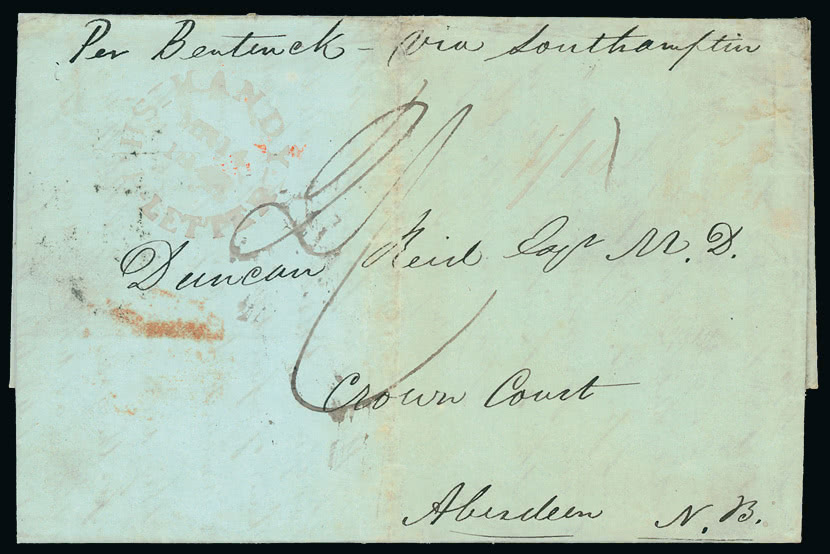 Per Bentinck – via Southampton
KANDY
LETTER
Duncan Reid Esqr M. D.
Crown Court
Aberdeen N. B.